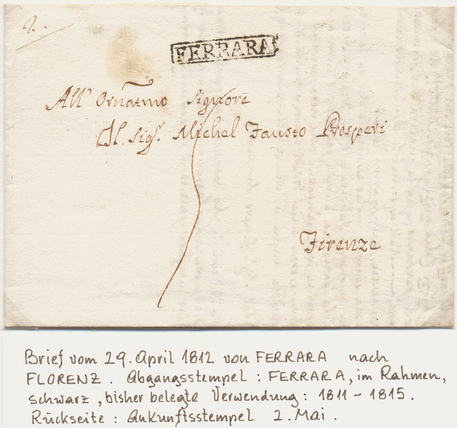 FERRARA
All' Ornatmo Signore
Il Sigr. Michel Fausto Prosperi
Firenze
Brief vom 29. April 1812 von FERRARA nach
FLORENZ. Abgangsstempel : FERRARA, im Rahmen,
schwarz, bisher belegte Verwendung : 1811 - 1815.
Rückseite : Ankunftsstempel 2. Mai.